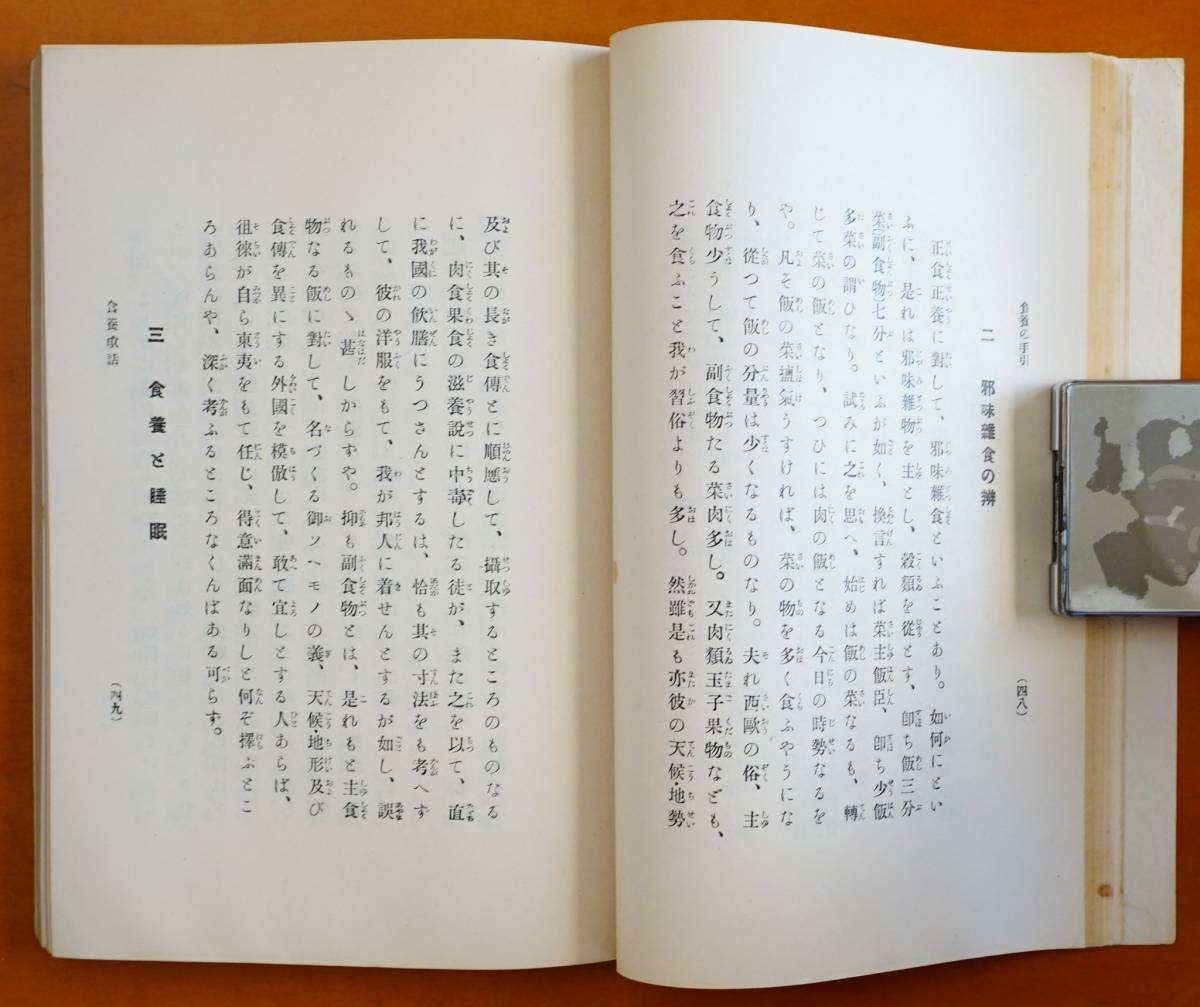 食養の手引
(四八)
二 邪味雜食の辨
正食正養に對して、邪味雜食といふことあり。如何にとい
ふに、是れは邪味雜物を主とし、穀類を從とす、卽ち飯三分
菜(副食物)七分といふが如く、換言すれば菜主飯臣、卽ち少飯
多菜の謂ひなり。試みに之を思へ、始めは飯の菜なるも、轉
じて菜の飯となり、つひには肉の飯となる今日の時勢なるを
や。凡そ飯の菜塩氣うすければ、菜の物を多く食ふやうにな
り、從つて飯の分量は少くなるものなり。夫れ西歐の俗、主
食物少うして、副食物たる菜肉多し。又肉類玉子果物なども、
之を食ふこと我が習俗よりも多し。然雖是も亦彼の天候・地勢
及び其の長き食傳とに順應して、攝取するところのものなる
に、肉食果食の滋養說に中毒したる徒が、また之を以て、直
に我國の飮膳にうつさんとするは、恰も其の寸法をも考へず
して、彼の洋服をもて、我が邦人に着せんとするが如し、誤
れるものゝ甚しからずや。抑も副食物とは、是れもと主食
物なる飯に對して、名づくる御ソヘモノの義、天候・地形及び
食傳を異にする外國を模倣して、敢て宜しとする人あらば、
徂徠が自ら東夷をもて任じ、得意滿面なりしと何ぞ擇ぶとこ
ろあらんや、深く考ふるところなくんばある可らず。
三 食養と睡眠
食養瑣話
(四九)